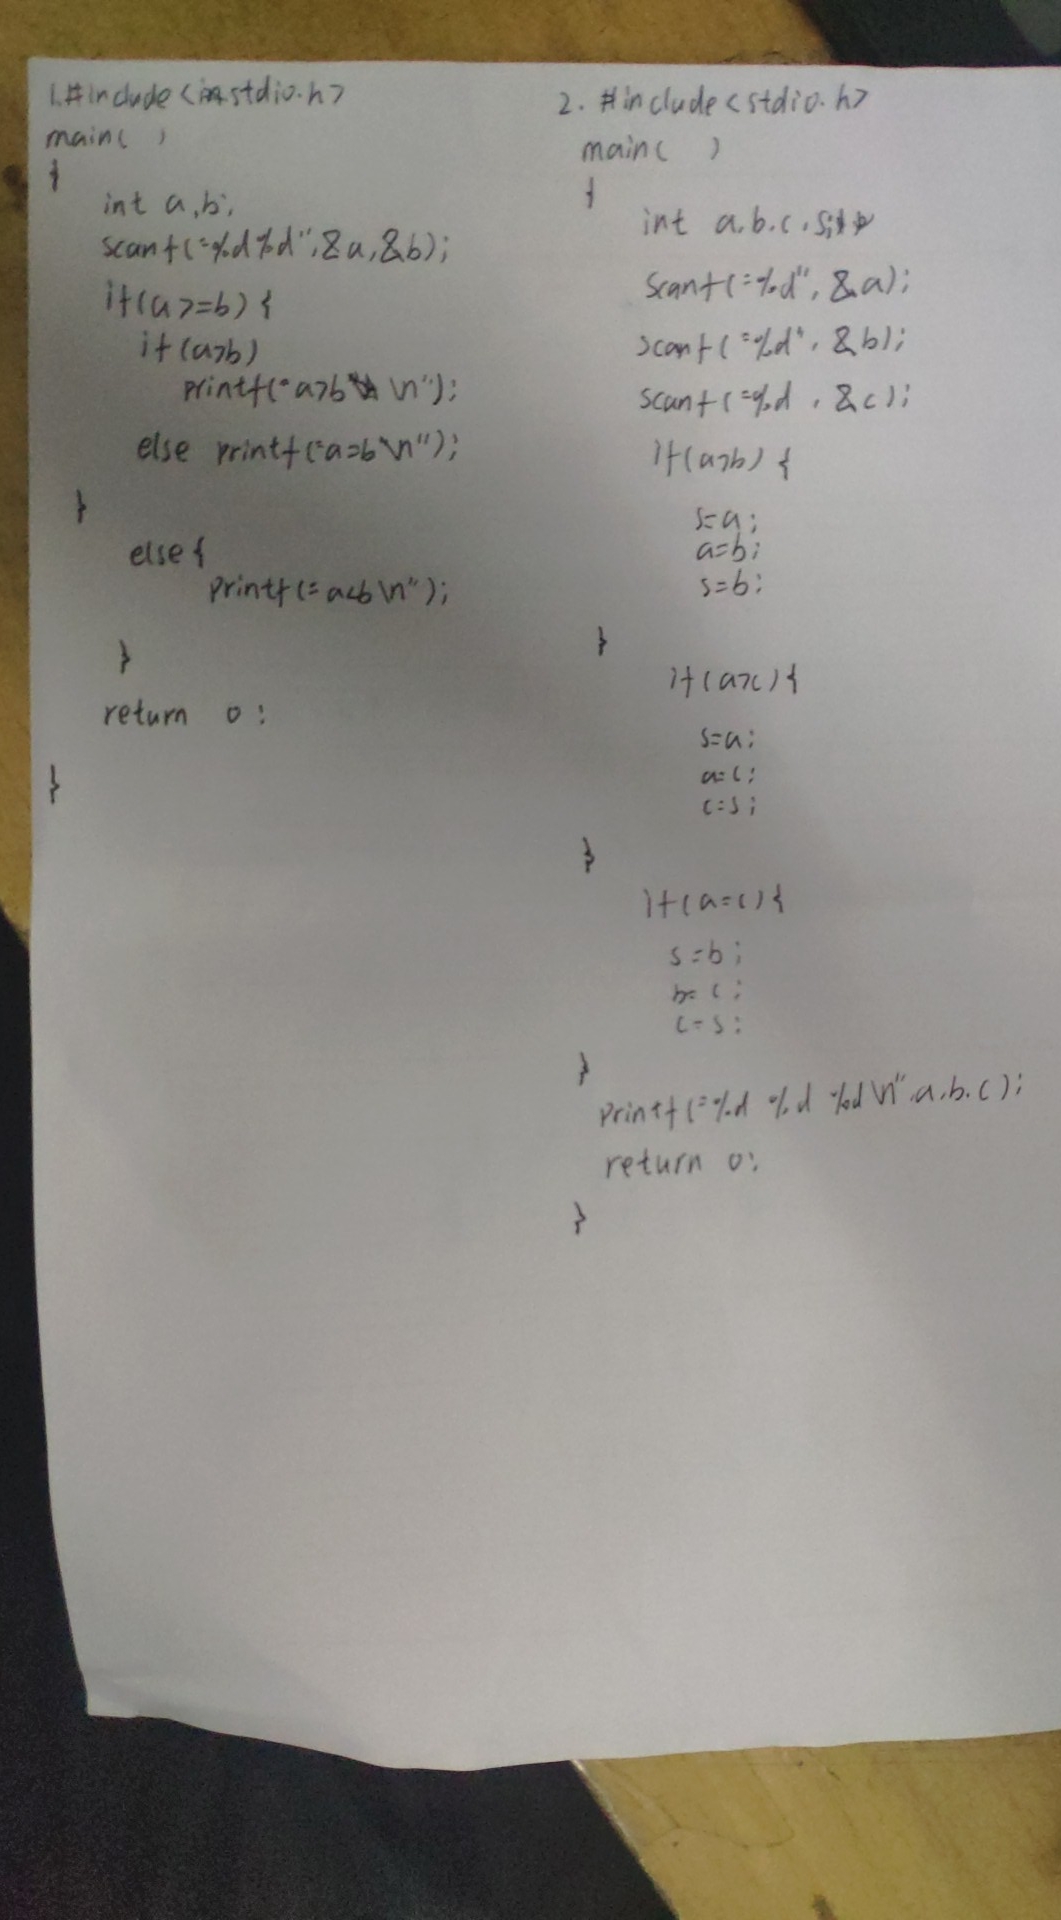 1.#include<stdio.h>
main( )
{
int a,b;
scanf("%d%d",&a,&b);
if(a>=b){
if(a>b)
printf("a>b\n");
else printf("a=b\n");
}
else{
printf("a<b\n");
}
return 0;
}
2. #include<stdio.h>
main( )
{
int a,b,c,s;
scanf("%d",&a);
scanf("%d",&b);
scanf("%d ,&c);
if(a>b){
s=a;
a=b;
s=b;
}
if(a>c){
s=a;
a=c;
c=s;
}
if(a=c){
s=b;
b=c;
c=s;
}
printf("%d %d %d\n",a,b,c);
return 0;
}